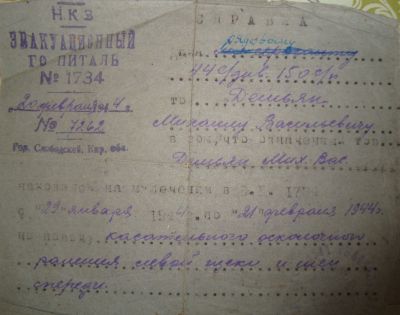 НКЗ
ЭВАКУАЦИОННЫЙ
ГОСПИТАЛЬ
№ 1734
"20" февраля 4 г.
№ 7262
Гор. Слободской, Кир. обл.
СПРАВКА
Дана рядовому
44 с/див. 15 ос/п
тов Демьян.
Михаилу Васильевичу
в том, что означенный тов
Демьян. Мих. Вас.
находился на излечении в Э.Г. 1734
с "29" января 1944 по "21" февраля 1944 г.
по поводу касательного осколочного
ранения левой щеки и шеи
спереди.